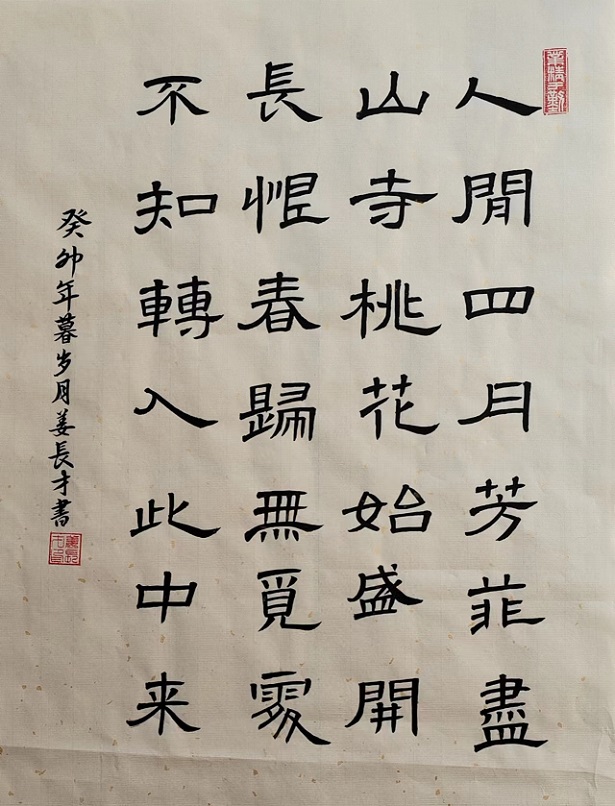 業精于勤
人閒四月芳菲盡
山寺桃花始盛開
長恨春歸無覓處
不知轉入此中来
癸卯年暮岁月姜長才書